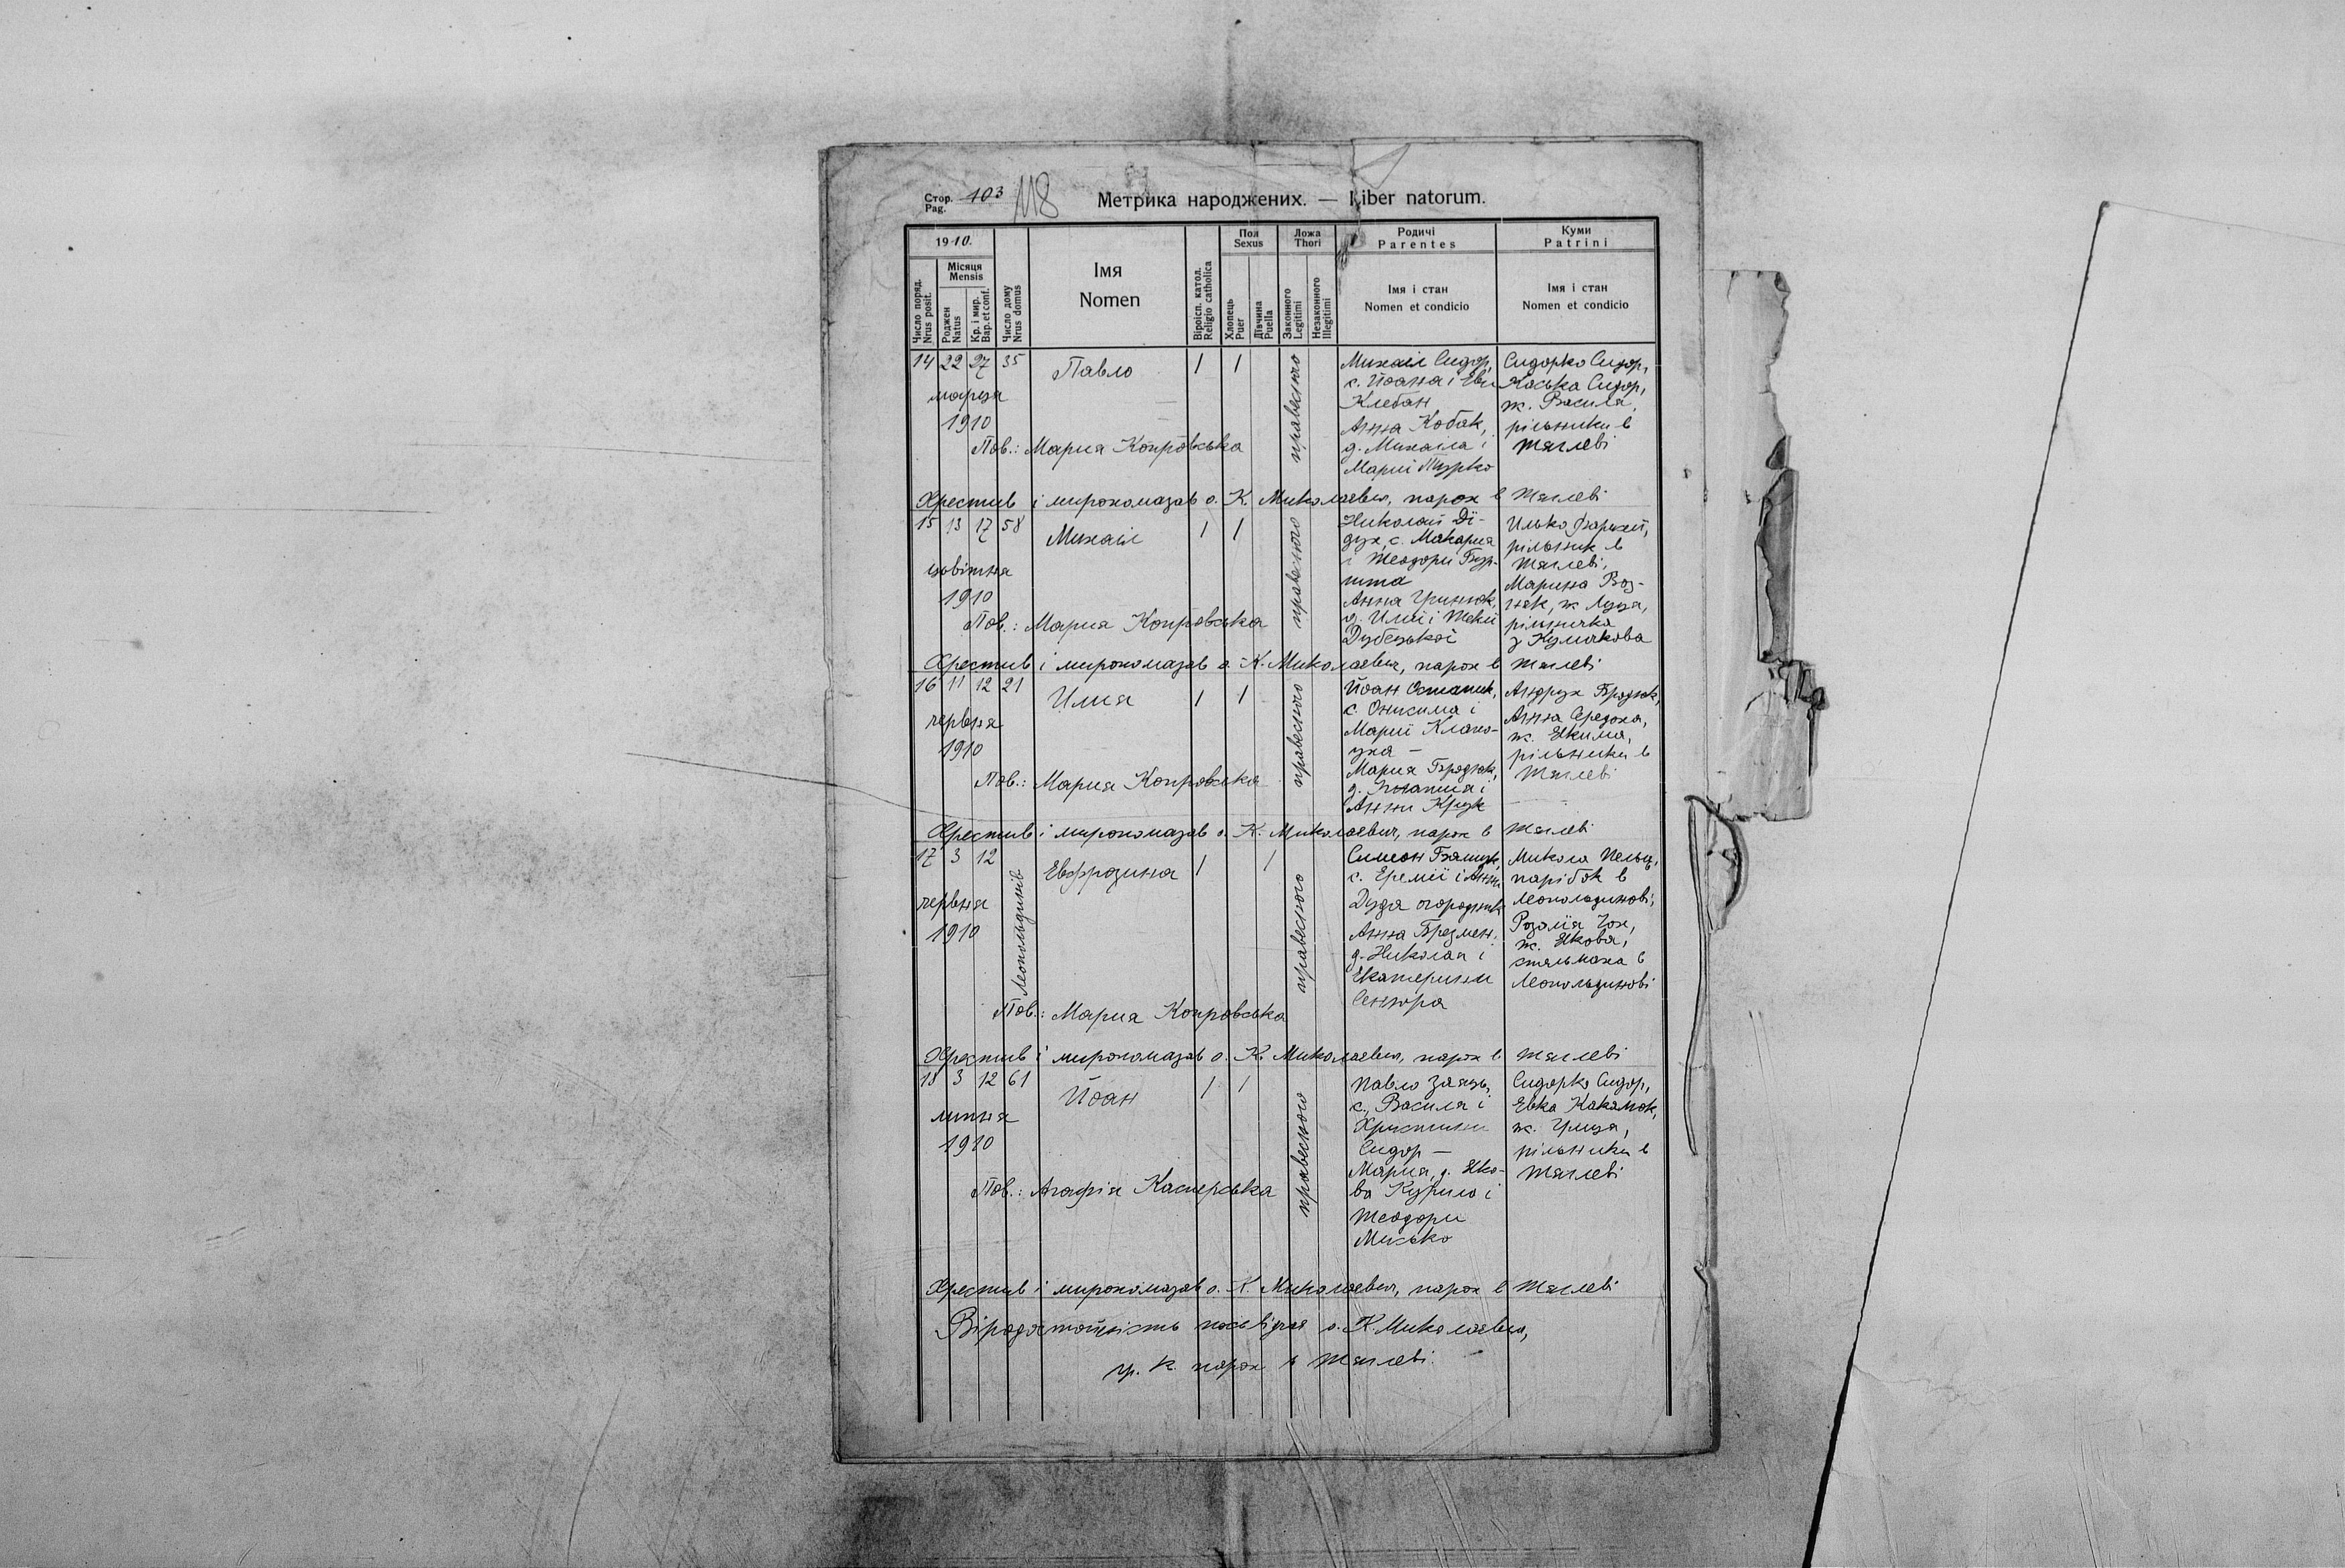 Стор. 103 118
Pag.
Метрика народжених. — Liber natorum.
1910.
Число поряд.
Nrus posit.
Місяця
Mensis
Роджен
Natus
Кр. і мир.
Bap. et conf.
Число дому
Nrus domus
Імя
Nomen
Віроісп. катол.
Religio catholica
Пол
Sexus
Хлопець
Puer
Дівчина
Puella
Ложа
Thori
Законного
Legitimi
Незаконного
Illegitimi
Родичі
Parentes
Імя і стан
Nomen et condicio
Куми
Patrini
Імя і стан
Nomen et condicio
14 22 27 35 Павло 1 1
марця
1910
Пов.: Мария Копровська
правесного
Михаіл Сидор,
с. Йоана і Еви
Клебан
Анна Кобак,
д. Михаіла і
Мариї Турко
Сидорко Сидор,
Каська Сидор,
ж. Василя,
рільники в
Тяглеві
Хрестив і миропомазав о. К. Миколаевич, парох в Тяглеві
15 13 17 58 Михаіл 1 1
цьвітня
1910
Пов.: Мария Копровська
правесного
Николай Ді-
дух, с. Макария
і Теодори Бур-
шта
Анна Гринюк,
д. Илиї і Теклі
Дубецької
Илько
рільник в
Тяглеві,
Марина Воз-
няк, ж. Луця,
рільничка
з Куличкова
Хрестив і миропомазав о. К. Миколаевич, парох в Тяглеві
16 11 12 21 Илия 1 1
червня
1910
Пов.: Мария Копровська
правесного
Йоан Остапик,
с. Онисима і
Мариї Клапо-
уха —
Мария Бродюк,
д. Игнатия і
Анни Крук
Андрух Бродюк,
Анна Середоха,
ж. Якима,
рільники в
Тяглеві
Хрестив і миропомазав о. К. Миколаевич, парох в Тяглеві
17 3 12 Евфрозина 1 1
червня
1910
Леопольдинів
Пов.: Мария Копровська
правесного
Симеон
с. Еремії і Анни
Дуда огородник
Анна Брезмен,
д. Николая і
Екатерини
Сенюра
Микола Пельц,
парібок в
Леопольдинові,
Розалія Чох,
ж. Якова,
стельмаха в
Леопольдинові
Хрестив і миропомазав о. К. Миколаевич, парох в Тяглеві
18 3 12 61 Йоан 1 1
липня
1910
Пов.: Агафія Касперська
правесного
Павло Заяць,
с. Василя і
Христини
Сидор —
Мария, д. Яко-
ва Курило і
Теодори
Мисько
Сидорко Сидор,
Евка Какалюк,
ж. Гриця,
рільники в
Тяглеві
Хрестив і миропомазав о. К. Миколаевич, парох в Тяглеві
Віродостойність посвідчає о. К. Миколаевич,
гр. к. парох в Тяглеві.